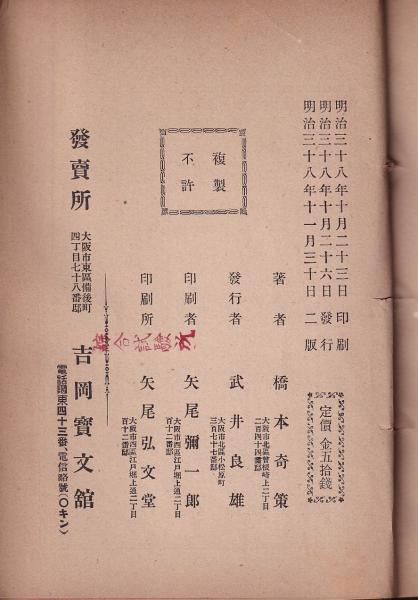 明治三十八年十月二十三日印刷
明治三十八年十月二十六日發行
明治三十八年十一月三十日二版
定價金五拾錢
複製
不許
著者 橋本奇策
大阪市北區曾根崎上二丁目
二百四十四番邸
發行者 武井良雄
大阪市北區小松原町
三百七十七番邸
印刷者 矢尾彌一郎
大阪市西區江戸堀上通二丁目
百十二番邸
印刷所 矢尾弘文堂
大阪市西區江戸堀上通二丁目
百十二番邸
發賣所
大阪市東區備後町
四丁目七十八番邸
吉岡寶文舘
電話東四十三番、電信略號(〇キン)